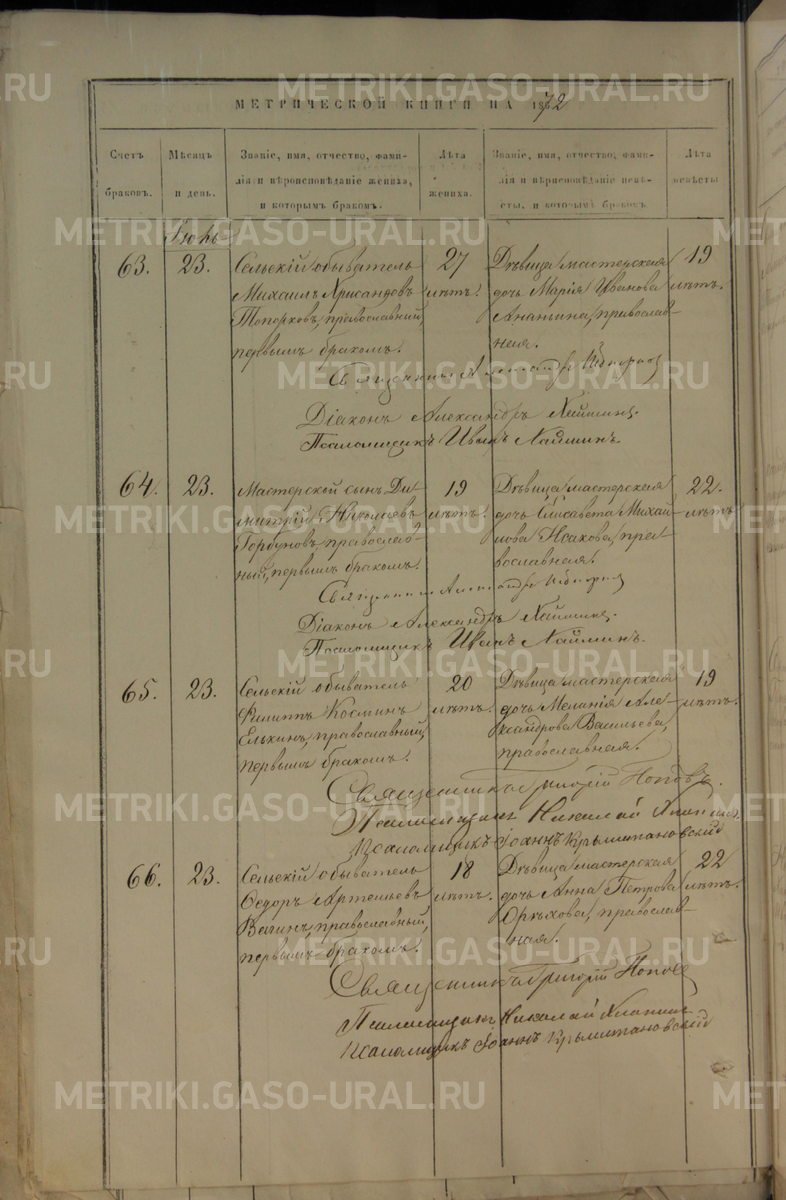 МЕТРИЧЕСКОЙ КНИГИ НА 1872
Счетъ браковъ.
Мѣсяцъ и день.
Званіе, имя, отчество, фами-
лія и вѣроисповѣданіе жениха,
и которымъ бракомъ.
Лѣта
жениха.
Званіе, имя, отчество, фами-
лія и вѣроисповѣданіе невѣ-
сты, и которымъ бракомъ
Лѣта
невѣсты
63.
23.
Сельскій обыватель
Михаилъ Хрисанфовъ
Топорковъ, православный,
первымъ бракомъ.
27
лѣтъ.
Дѣвица мастерская
дочь Марія Иванова
Ананьина, православ-
ная.
19
лѣтъ.
Священникъ Александръ
Діаконъ Александръ
Псаломщикъ Иванъ
64.
23.
Мастерской сынъ Ди-
митрій
Горбуновъ, православ-
ный, первымъ бракомъ.
19
лѣтъ.
Дѣвица мастерская
дочь Елисавета Михаи-
лова Исакова, пра-
вославная.
22.
лѣтъ
Священникъ Александръ
Діаконъ Александръ
Псаломщикъ Иванъ
65.
23.
Сельскій обыватель
Филиппъ Косминъ
Елькинъ, православный,
первымъ бракомъ.
20
лѣтъ.
Дѣвица мастерская
дочь Меланія Але-
ксандрова Васильева,
православная.
19
лѣтъ.
Священникъ Григорій Поповъ.
Николай
Псаломщикъ Іоаннъ
66.
23.
Сельскій обыватель
Ѳедоръ Артемьевъ
православный,
первымъ бракомъ.
18
лѣтъ.
Дѣвица мастерская
дочь Анна Петрова
Орѣхова, православ-
ная.
22
лѣтъ.
Священникъ Григорій Поповъ
Николай
Псаломщикъ Іоаннъ
METRIKI.GASO-URAL.RU